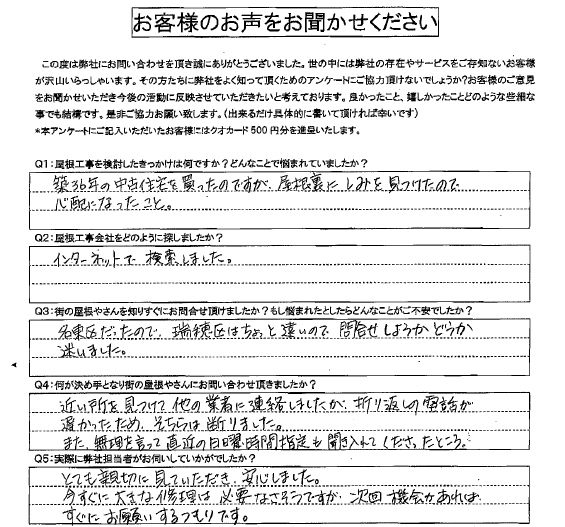 お客様のお声をお聞かせください
この度は弊社にお問い合わせを頂き誠にありがとうございました。世の中には弊社の存在やサービスをご存知ないお客様
が沢山いらっしゃいます。その方たちに弊社をよく知って頂くためのアンケートにご協力頂けないでしょうか?お客様のご意見
をお聞かせいただき今後の活動に反映させていただきたいと考えております。良かったこと、嬉しかったことどのような些細な
事でも結構です。是非ご協力お願い致します。(出来るだけ具体的に書いて頂ければ幸いです)
*本アンケートにご記入いただいたお客様にはクオカード500円分を進呈いたします。
Q1:屋根工事を検討したきっかけは何ですか?どんなことで悩まれていましたか?
築36年の中古住宅を買ったのですが、屋根裏にしみを見つけたので
心配になったこと。
Q2:屋根工事会社をどのように探しましたか?
インターネットで検索しました。
Q3:街の屋根やさんを知りすぐにお問合せ頂けましたか?もし悩まれたとしたらどんなことがご不安でしたか?
名東区だったので、瑞穂区はちょっと遠いので問合せしようかどうか
迷いました。
Q4:何が決め手となり街の屋根やさんにお問い合わせ頂きましたか?
近い所を見つけて他の業者に連絡しましたが、折り返しの電話が
遅かったため、そちらは断りました。
また、無理を言って直近の日曜時間指定も聞き入れてくださったところ。
Q5:実際に弊社担当者がお伺いしていかがでしたか?
とても親切に見ていただき、安心しました。
今すぐに大きな修理は必要なさそうですが、次回機会があれば
すぐにお願いするつもりです。